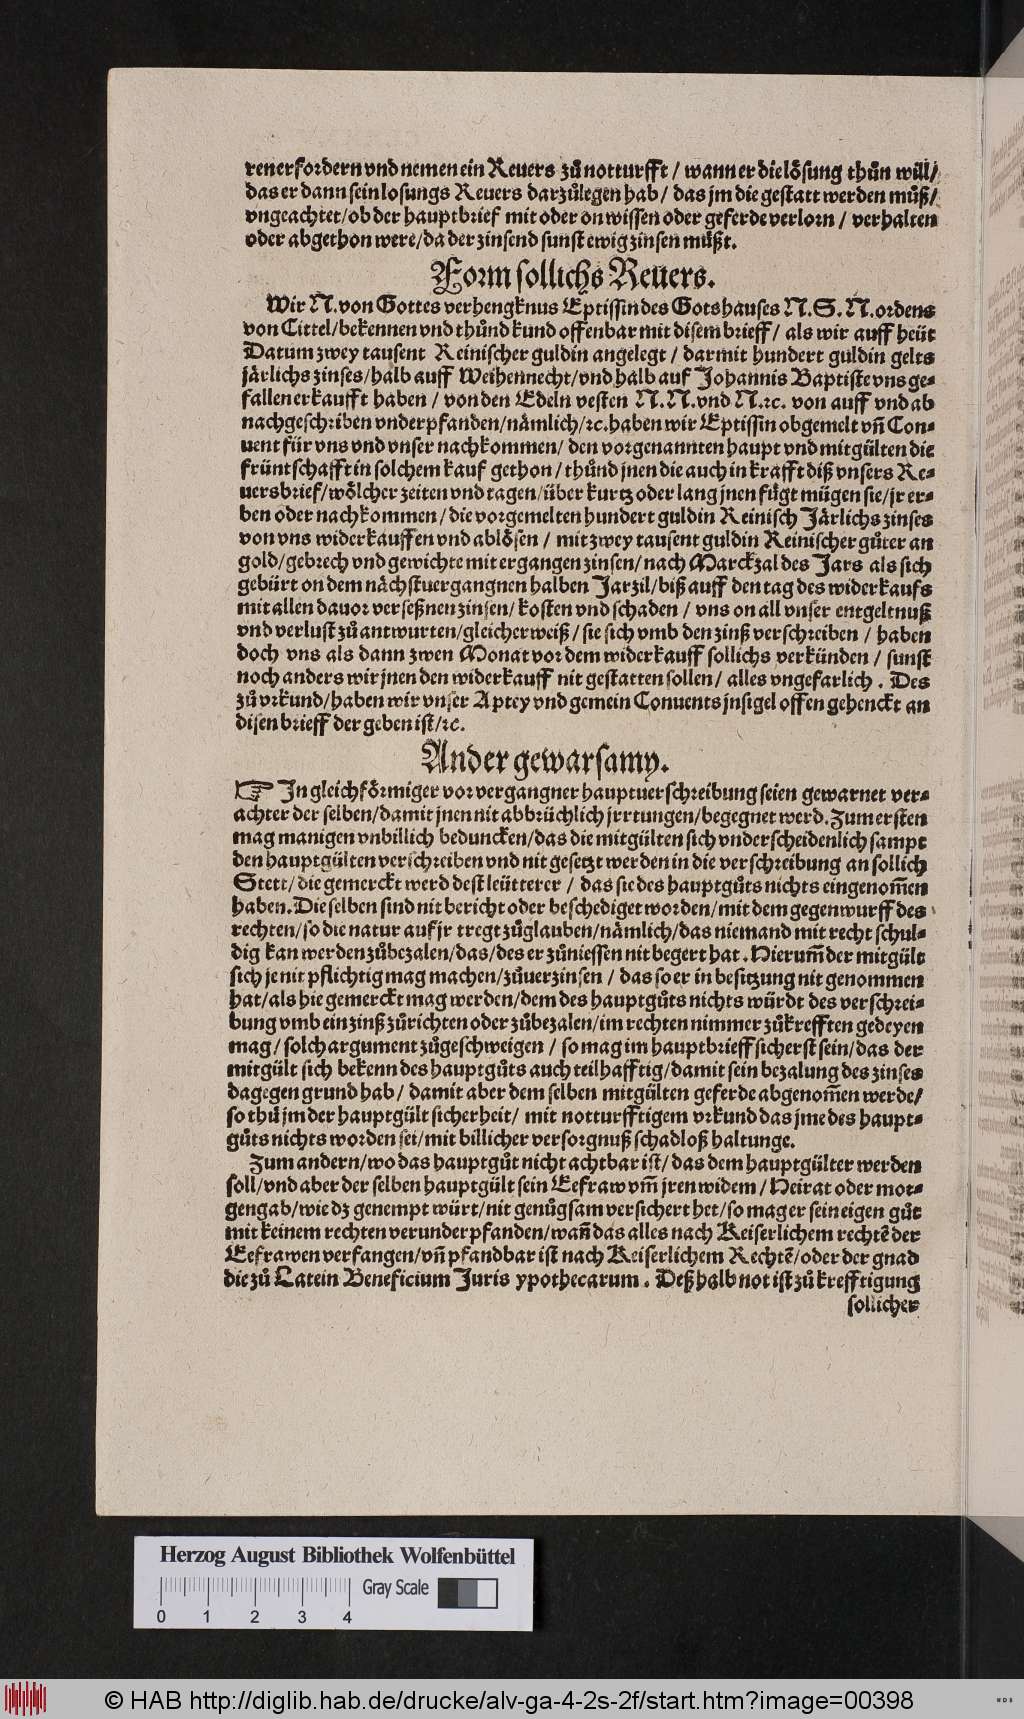 ren erfordern vnd nemen ein Reuers zů notturfft / wann er die lösung thůn will /
das er dann sein losungs Reuers darzůlegen hab / das jm die gestatt werden můß /
vngeachtet / ob der hauptbrief mit oder on wissen oder geferde verlorn / verhalten
oder abgethon were / da der zinsend sunst ewig zinsen müßt.
Form sollichs Reuers.
Wir N. von Gottes verhengknus Eptissin des Gotshauses N. S. N. ordens
von Cittel / bekennen vnd thůnd kund offenbar mit disem brieff / als wir auff heüt
Datum zwey tausent Reinischer guldin angelegt / darmit hundert guldin gelts
järlichs zinses / halb auff Weihennecht / vnd halb auf Johannis Baptiste vns ge⸗
fallen erkaufft haben / von den Edeln vesten N. N. vnd N. ꝛc. von auff vnd ab
nachgeschriben vnderpfanden / nämlich / ꝛc. haben wir Eptissin obgemelt vñ Con⸗
uent für vns vnd vnser nachkommen / den vorgenannten haupt vnd mitgülten die
früntschafft in solchem kauf gethon / thůnd jnen die auch in krafft diß vnsers Re⸗
uersbrief / wölcher zeiten vnd tagen / über kurtz oder lang jnen fůgt mügen sie / jr er⸗
ben oder nachkommen / die vorgemelten hundert guldin Reinisch Järlichs zinses
von vns widerkauffen vnd ablösen / mit zwey tausent guldin Reinischer gůter an
gold / gebrech vnd gewichte mit ergangen zinsen / nach Marckzal des Jars als sich
gebürt on dem nächstuergangnen halben Jarzil / biß auff den tag des widerkaufs
mit allen dauor verseßnen zinsen / kosten vnd schaden / vns on all vnser entgeltnuß
vnd verlust zů antwurten / gleicher weiß / sie sich vmb den zinß verschreiben / haben
doch vns als dann zwen Monat vor dem widerkauff sollichs verkünden / sunst
noch anders wir jnen den widerkauff nit gestatten sollen / alles vngefarlich. Des
zů vrkund / haben wir vnser Aptey vnd gemein Conuents jnsigel offen gehenckt an
disen brieff der geben ist / ꝛc.
Ander gewarsamy.
☞ In gleichförmiger vor vergangner hauptuerschreibung seien gewarnet ver⸗
achter der selben / damit jnen nit abbrüchlich jrrtungen / begegnet werd. Zum ersten
mag manigen vnbillich beduncken / das die mitgülten sich vnderscheidenlich sampt
den hauptgülten verschreiben vnd nit gesetzt werden in die verschreibung an sollich
Stett / die gemerckt werd dest leütterer / das sie des hauptgůts nichts eingenom̃en
haben. Die selben sind nit bericht oder beschediget worden / mit dem gegenwurff des
rechten / so die natur auf jr tregt zůglauben / nämlich / das niemand mit recht schul⸗
dig kan werden zůbezalen / das / des er zůniessen nit begert hat. Hierum̃ der mitgült
sich je nit pflichtig mag machen / zůuerzinsen / das so er in besitzung nit genommen
hat / als hie gemerckt mag werden / dem des hauptgůts nichts würdt des verschrei⸗
bung vmb ein zinß zůrichten oder zůbezalen / im rechten nimmer zůkrefften gedeyen
mag / solch argument zůgeschweigen / so mag im hauptbrieff sicherst sein / das der
mitgült sich bekenn des hauptgůts auch teilhafftig / damit sein bezalung des zinses
dagegen grund hab / damit aber dem selben mitgülten geferde abgenom̃en werde /
so thů jm der hauptgült sicherheit / mit notturfftigem vrkund das jme des haupt⸗
gůts nichts worden sei / mit billicher versorgnuß schadloß haltunge.
Zum andern / wo das hauptgůt nicht achtbar ist / das dem hauptgülter werden
soll / vnd aber der selben hauptgült sein Eefraw vm̃ jren widem / Heirat oder mor⸗
gengab / wie dz genempt würt / nit genůgsam versichert het / so mag er sein eigen gůt
mit keinem rechten verunderpfanden / wañ das alles nach Keiserlichem rechtẽ der
Eefrawen verfangen / vñ pfandbar ist nach Keiserlichem Rechtẽ / oder der gnad
die zů Latein Beneficium Juris ypothecarum. Deßhalb not ist zů krefftigung
sollicher
Herzog August Bibliothek Wolfenbüttel
Gray Scale
0 1 2 3 4
© HAB http://diglib.hab.de/drucke/alv-ga-4-2s-2f/start.htm?image=00398